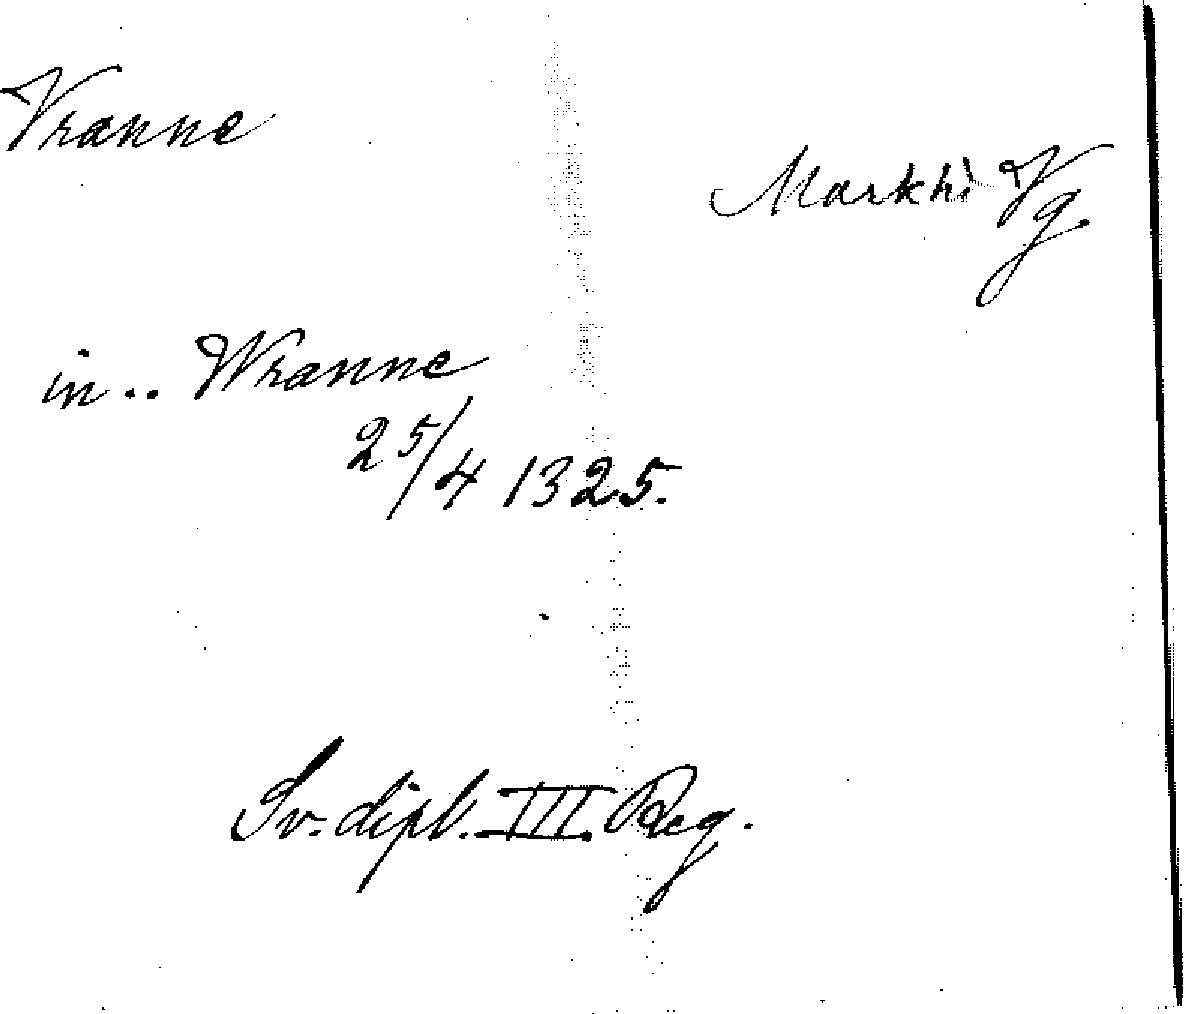 Vranne
Markh: Vg.
in.. Wranne
25/4 1325.
Sv. dipl. III. Reg.